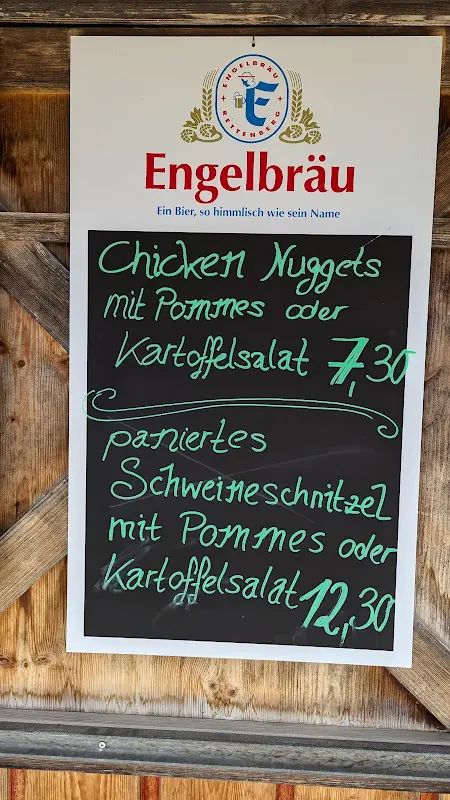 ENGELBRÄU
E
RETTENBERG
Engelbräu
Ein Bier, so himmlisch wie sein Name
Chicken Nuggets
mit Pommes oder
Kartoffelsalat 7,30
paniertes
Schweineschnitzel
mit Pommes oder
Kartoffelsalat 12,30